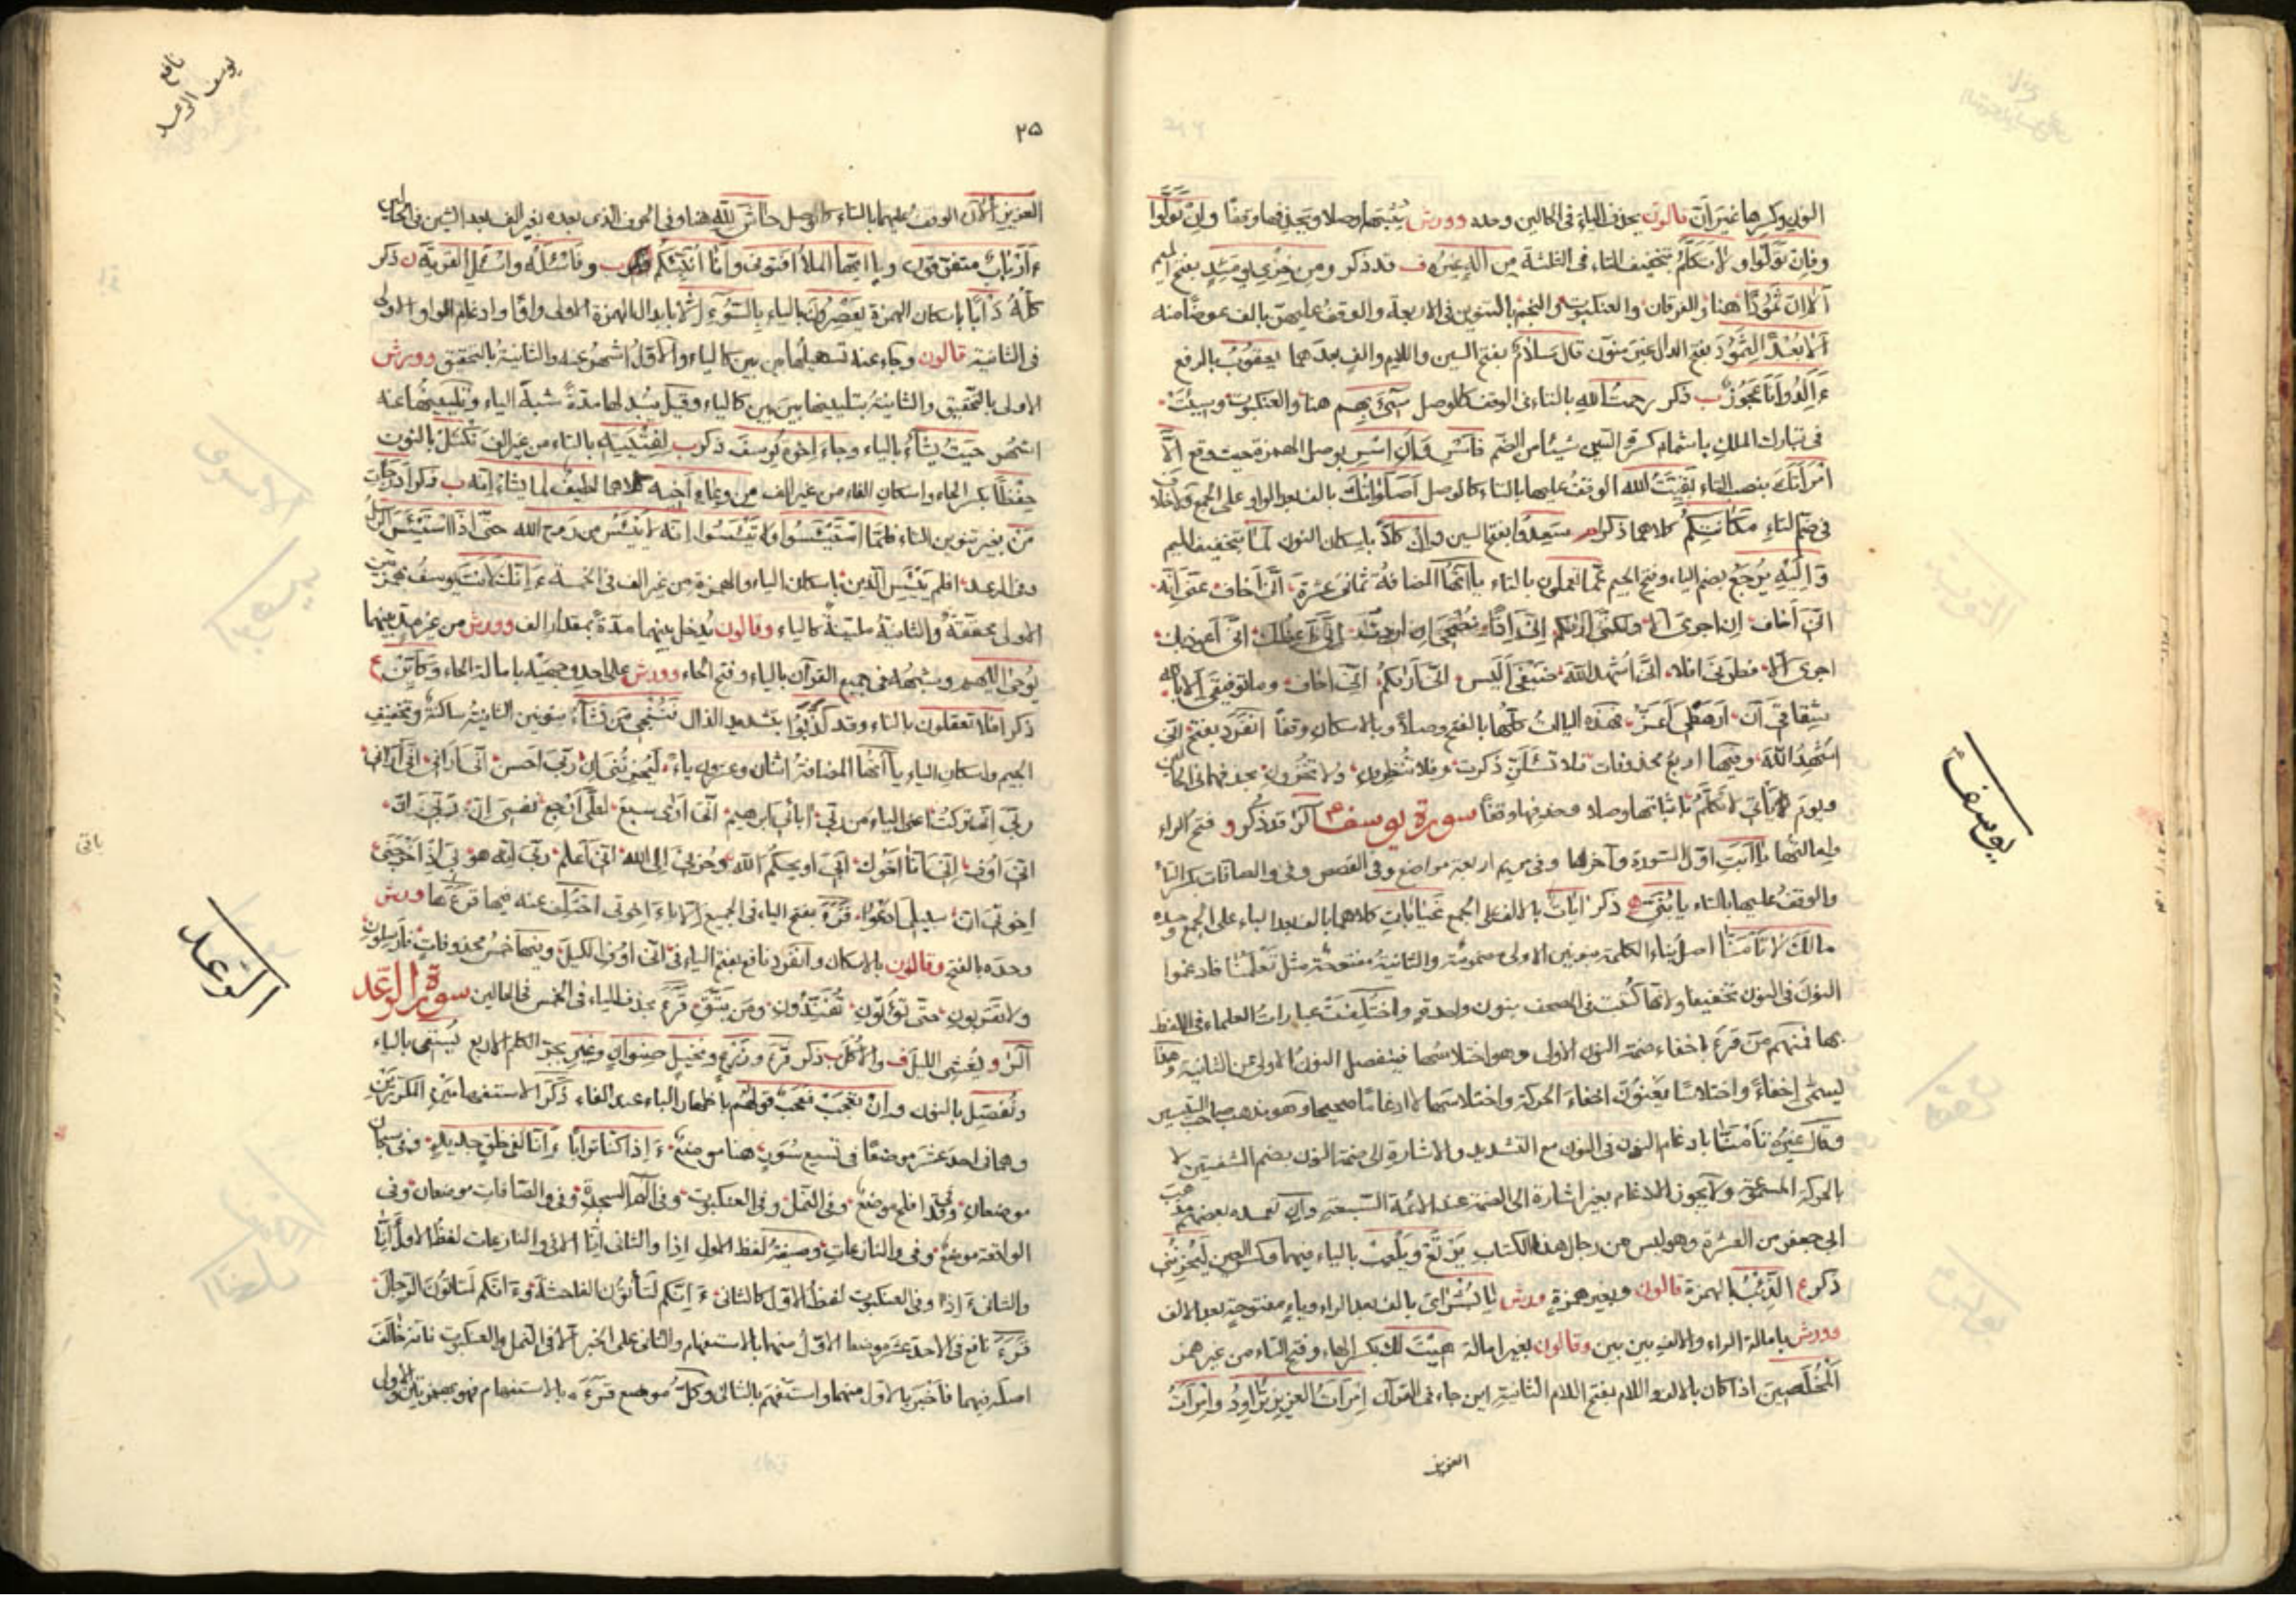 النون وكسرها غير أنّ قالون يحذف الياء في الحالين وحده وورش يثبتها وصلا ويحذفها وقفًا وان تولّوا
وفإن تولّوا ولا تكلّم بتخفيف التاء في الثلثة من اله غيره ف قد ذكر ومن خزي يومئذٍ بفتح الميم
ألا انّ ثمودًا هنا والفرقان والعنكبوت والنجم بالتنوين في الاربعة والوقف عليهنّ بالف عوضًا منه
ألا بعدًا لثمود بفتح الدال غير منوّن قال سلام بفتح السين واللام والف بعدهما يعقوب بالرفع
ءَألد وانا عجوز ب ذكر رحمت الله بالتاء في الوقف كالوصل سيء بهم هنا والعنكبوت وسيئت
في تبارك الملك باشمام كسرة السين شيئا من الضم فاسر وان اسر بوصل الهمزة حيث وقع الّا
امرأتك بنصب التاء بقيّت الله الوقف عليها بالتاء كالوصل أصلواتك بالف بعد الواو على الجمع ولا خلاف
في ضمّ التاء مكانتكم كلاهما ذكر سعدوا بفتح السين وان كلًّا باسكان النون لما بتخفيف الميم
واليه يرجع بضم الياء وفتح الجيم عمّا تعملون بالتاء ياآتها المضافة ثماني عشرة انّي اخاف عنّي انّه
انّي أخاف ان اجري الا ولكنّي اراكم انّي اذًا نصحي ان اردت انّي اعظك انّي اعوذ بك
اجري الا فطرني افلا انّي اشهد الله ضيفي أليس انّي اراكم انّي اخاف وما توفيقي الا بالله
شقاقي أن أرهطي أعزّ فهذه الياآت كلّها بالفتح وصلًا وبالاسكان وقفًا انفرد بفتح انّي
اشهد الله وفيها اربع محذوفات فلا تسئلنّ ذكرت وفلا تنظرون ولا تخزون بحذفهما في الحالين
ويوم يأتي لا تكلّم باثباتها وصلا وحذفها وقفًا سورة يوسف الر قد ذكر و فتح الراء
وامالتها يا أبت اوّل السورة وآخرها وفي مريم اربعة مواضع وفي القصص وفي والصافات بكسر التاء
والوقف عليها بالتاء يا بنيّ ذكر آيات بالالف على الجمع غيابات كلاهما بالف بعد الباء على الجمع وحده
مالك لا تأمنّا اصل بناء الكلمة بنونين الاولى مضمومة والثانية مفتوحة مثل تعلمنا فادغموا
النون في النون تخفيفا ولانّها كتبت في المصحف بنون واحدة واختلفت عبارات العلماء في اللفظ
بها فمنهم من قرء باخفاء ضمة النون الاولى وهو اختلاسها فينفصل النون الاولى عن الثانية وهذا
يسمّى إخفاءً واختلاسًا يعنون اخفاء الحركة واختلاسها لا ادغامًا صحيحا وهو مذهب صاحب التيسير
وقال غيره تأمنّا بادغام النون في النون مع التشديد والاشارة الى ضمة النون بضم الشفتين لا
بالحركة المسموعة ولا يجوز الادغام بغير اشارة الى الضمة عند الائمة السبعة وان تعمده بعضهم مذهب
ابي جعفر من العشرة وهو ليس من رجال هذا الكتاب يرتع ويلعب بالياء فيهما وكسر العين ليحزنني
ذكر ع الذئب بالهمزة قالون وبغير همزة ورش يا بشراي بالف بعد الراء وياء مفتوحة بعد الالف
وورش بامالة الراء والالف بين بين وقالون بغير امالة هيت لك بكسر الهاء وفتح التاء من غير همز
المخلصين اذا كان بالالف واللام بفتح اللام الثانية اين جاء في القرآن امرأت العزيز تراود وامرأت
العزيز
يوسف
نافع
يوسف الرعد
٢٥
العزيز الآن الوقف عليهما بالتاء كالوصل حاش لله هنا وفي الحرف الذي بعده بغير الف بعد الشين في الحالين
ءأرباب متفرّقون ويا ايّها الملأ افتوني وأنا أنبئكم ب وفاسئله واسئل القرية ن ذكر
كلّه دأبًا باسكان الهمزة يعصرون بالياء بالسّوء إلّا بابدال الهمزة الاولى واوًا وادغام الواو الاولى
في الثانية قالون وجاء عنه تسهيلها بين بين كالياء والاوّل اشهر عنه والثانية بالتحقيق وورش
الاولى بالتحقيق والثانية بتليينها بين بين كالياء وقيل يبدلها مدةً شبه الياء وتليينها عنه
اشهر حيث يشاء بالياء وجاء اخوة يوسف ذكر ب لفتيته بالتاء من غير الف نكتل بالنون
حفظًا بكسر الحاء واسكان الفاء من غير الف من وعاء أخيه كلاهما لطيف لما يشاء انّه ب ذكر درجات
من بغير تنوين التاء فلمّا استيئسوا ولا تيئسوا انه لا ييئس من روح الله حتى اذا استيئس الرسل
وفي الرعد افلم ييئس الذين باسكان الياء والهمزة من غير الف في الخمسة ءانّك لانت يوسف بهمزتين
الاولى محقّقة والثانية مليّنة كالياء وقالون يُدخل بينهما مدة بمقدار الف وورش من غير مد بينهما
يوحى اليهم وشبهه في جميع القرآن بالياء وفتح الحاء وورش على احد وجهيه بامالة الحاء وكأيّن ع
ذكر افلا تعقلون بالتاء وقد كذّبوا بتشديد الذال فننجي من نشاء بنونين الثانية ساكنة وتخفيف
الجيم واسكان الياء ياآتها المضافة اثنان وعشرون ياء ليحزنني ان ربّي احسن انّي اراني انّي اراني
ربّي انّي تركت اعني الياء من ربّي آبائي ابرهيم انّي أرى سبع لعلّي أرجع نفسي انّ ربّي انّ
انّي اوف انّي انا اخوك ابي او يحكم الله وحزني الى الله انّي اعلم ربّي انّه هو بي اذ اخرجني
اخوتي انّ سبيلي ادعوا قرء بفتح الياء في الجميع إلّا ياء اخوتي اختلف عنه فيها قرءها ورش
وحده بالفتح وقالون بالاسكان وانفرد نافع بفتح الياء في انّي اوف الكيل وفيها خمس محذوفات فارسلون
ولا تقربون حتى تؤتون تفنّدون ومن يتّق قرء بحذف الياء في الخمس في الحالين سورة الرّعد
المر و يغشي الليل ف والاكل ب ذكر قرء وزرع ونخيل صنوان وغير بجرّ الكلم الاربع تسقى بالياء
ونفضّل بالنون وان تعجب فعجب قولهم باظهار الباء عند الفاء ذكر الاستفهامين المكرّرين
وهما في احد عشر موضعًا في تسع سور هنا موضع ءاذا كنّا ترابًا ءانّا لفي خلق جديد وفي سبحان
موضعان وقد افلح موضع وفي النمل وفي العنكبوت وفي الم السجدة وفي والصّافات موضعان وفي
الواقعة موضع وفي والنازعات وصيغة لفظ الاول اذا والثاني أئنا الا في والنازعات لفظ الاول أئنّا
والثاني ءاذا وفي العنكبوت لفظ الاوّل كالثاني ءانّكم لتأتون الفاحشة ءانّكم لتأتون الرجال
قرء نافع في الاحد عشر موضعا الاول منهما بالاستفهام والثاني على الخبر الا في النمل والعنكبوت فانه خالف
اصله فيهما فاخبر بالاول منهما واستفهم بالثاني وكلّ موضع قرءه بالاستفهام فهو بهمزتين الاولى
الرّعد